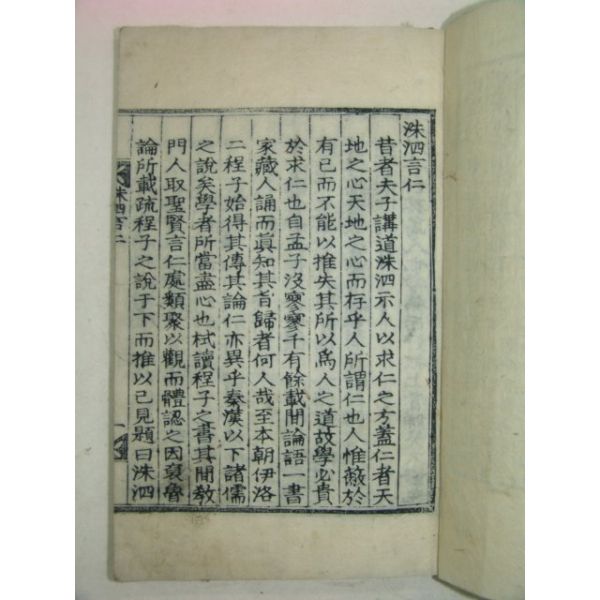 洙泗言仁
昔者夫子講道洙泗示人以求仁之方蓋仁者天
地之心天地之心而存乎人所謂仁也人惟蔽於
有已而不能以推失其所以爲人之道故學必貴
於求仁也自孟子沒寥寥千有餘載間論語一書
家藏人誦而眞知其旨歸者何人哉至本朝伊洛
二程子始得其傳其論仁亦異乎秦漢以下諸儒
之說矣學者所當盡心也栻讀程子之書其間敎
門人取聖賢言仁處類聚以觀而體認之因裒魯
論所載疏程子之說于下而推以己見題曰洙泗
洙泗言仁
一